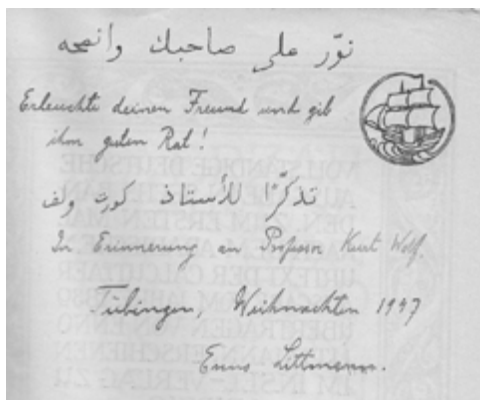 نوّر على صاحبك وانصحه
Erleuchte deinen Freund und gib
ihm guten Rat!
تذكرًا للأستاذ كورت ولف
In Erinnerung an Professor Kurt Wolf.
Tübingen, Weihnachten 1947
Enno Littmann.